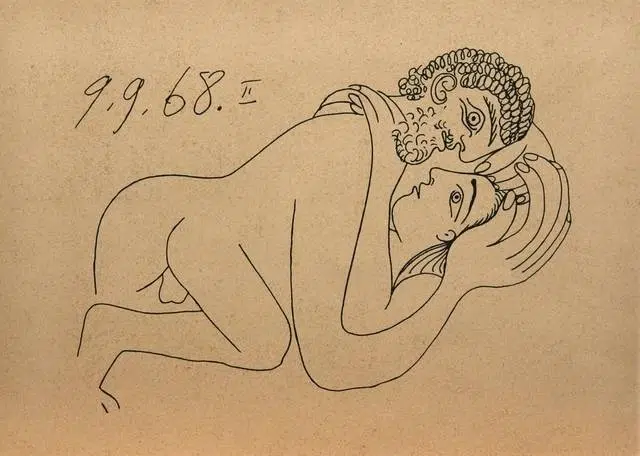 9.9.68. II